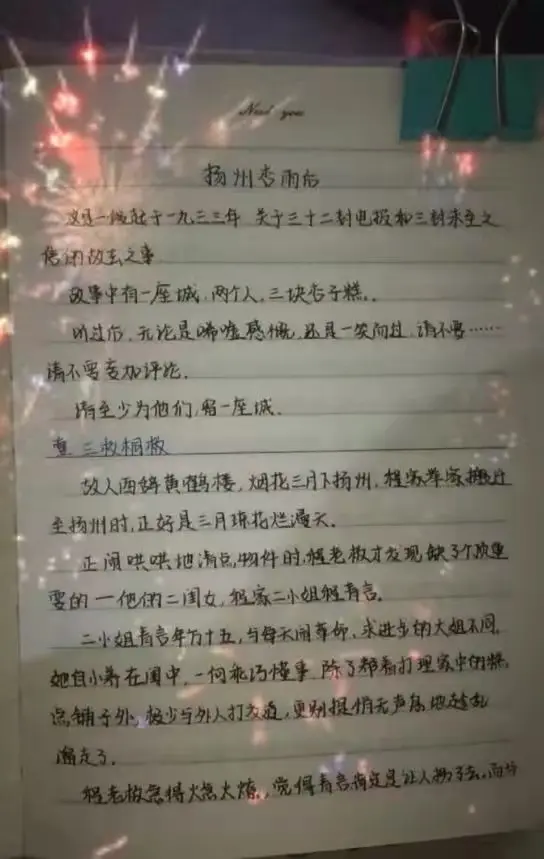 Need you
扬州杏雨后
这是一段起于一九三三年 关于三十二封电报和三封未至之
信的故去之事
故事中有一座城,两个人,三块杏子糕。
听过后,无论是唏嘘感慨,还是一笑而过,请不要……
请不要妄加评论.
请至少为他们,留一座城.
壹 三枚桐板
故人西辞黄鹤楼,烟花三月下扬州,程家举家搬迁
至扬州时,正好是三月琼花烂漫天.
正闹哄哄地清点物件时,程老板才发现缺了个顶重
要的一他的二闺女,程家二小姐程青言。
二小姐青言年方十五,与每天闹革命、求进步的大姐不同,
她自小养在闺中,一向乖巧懂事 除了帮着打理家中的糕
点铺子外,极少与外人打交道,更别提悄无声息地趁乱
溜走了。
程老板急得火急火燎,觉得青言肯定是让人拐了去,